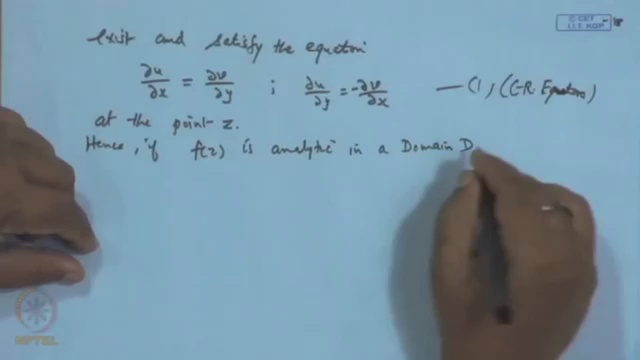 exist and satisfy the equation
∂u/∂x = ∂v/∂y ; ∂u/∂y = -∂v/∂x — (1) (C-R. Equations)
at the point z.
Hence, if f(z) is analytic in a Domain D
© CET
I.I.T. KGP
NPTEL